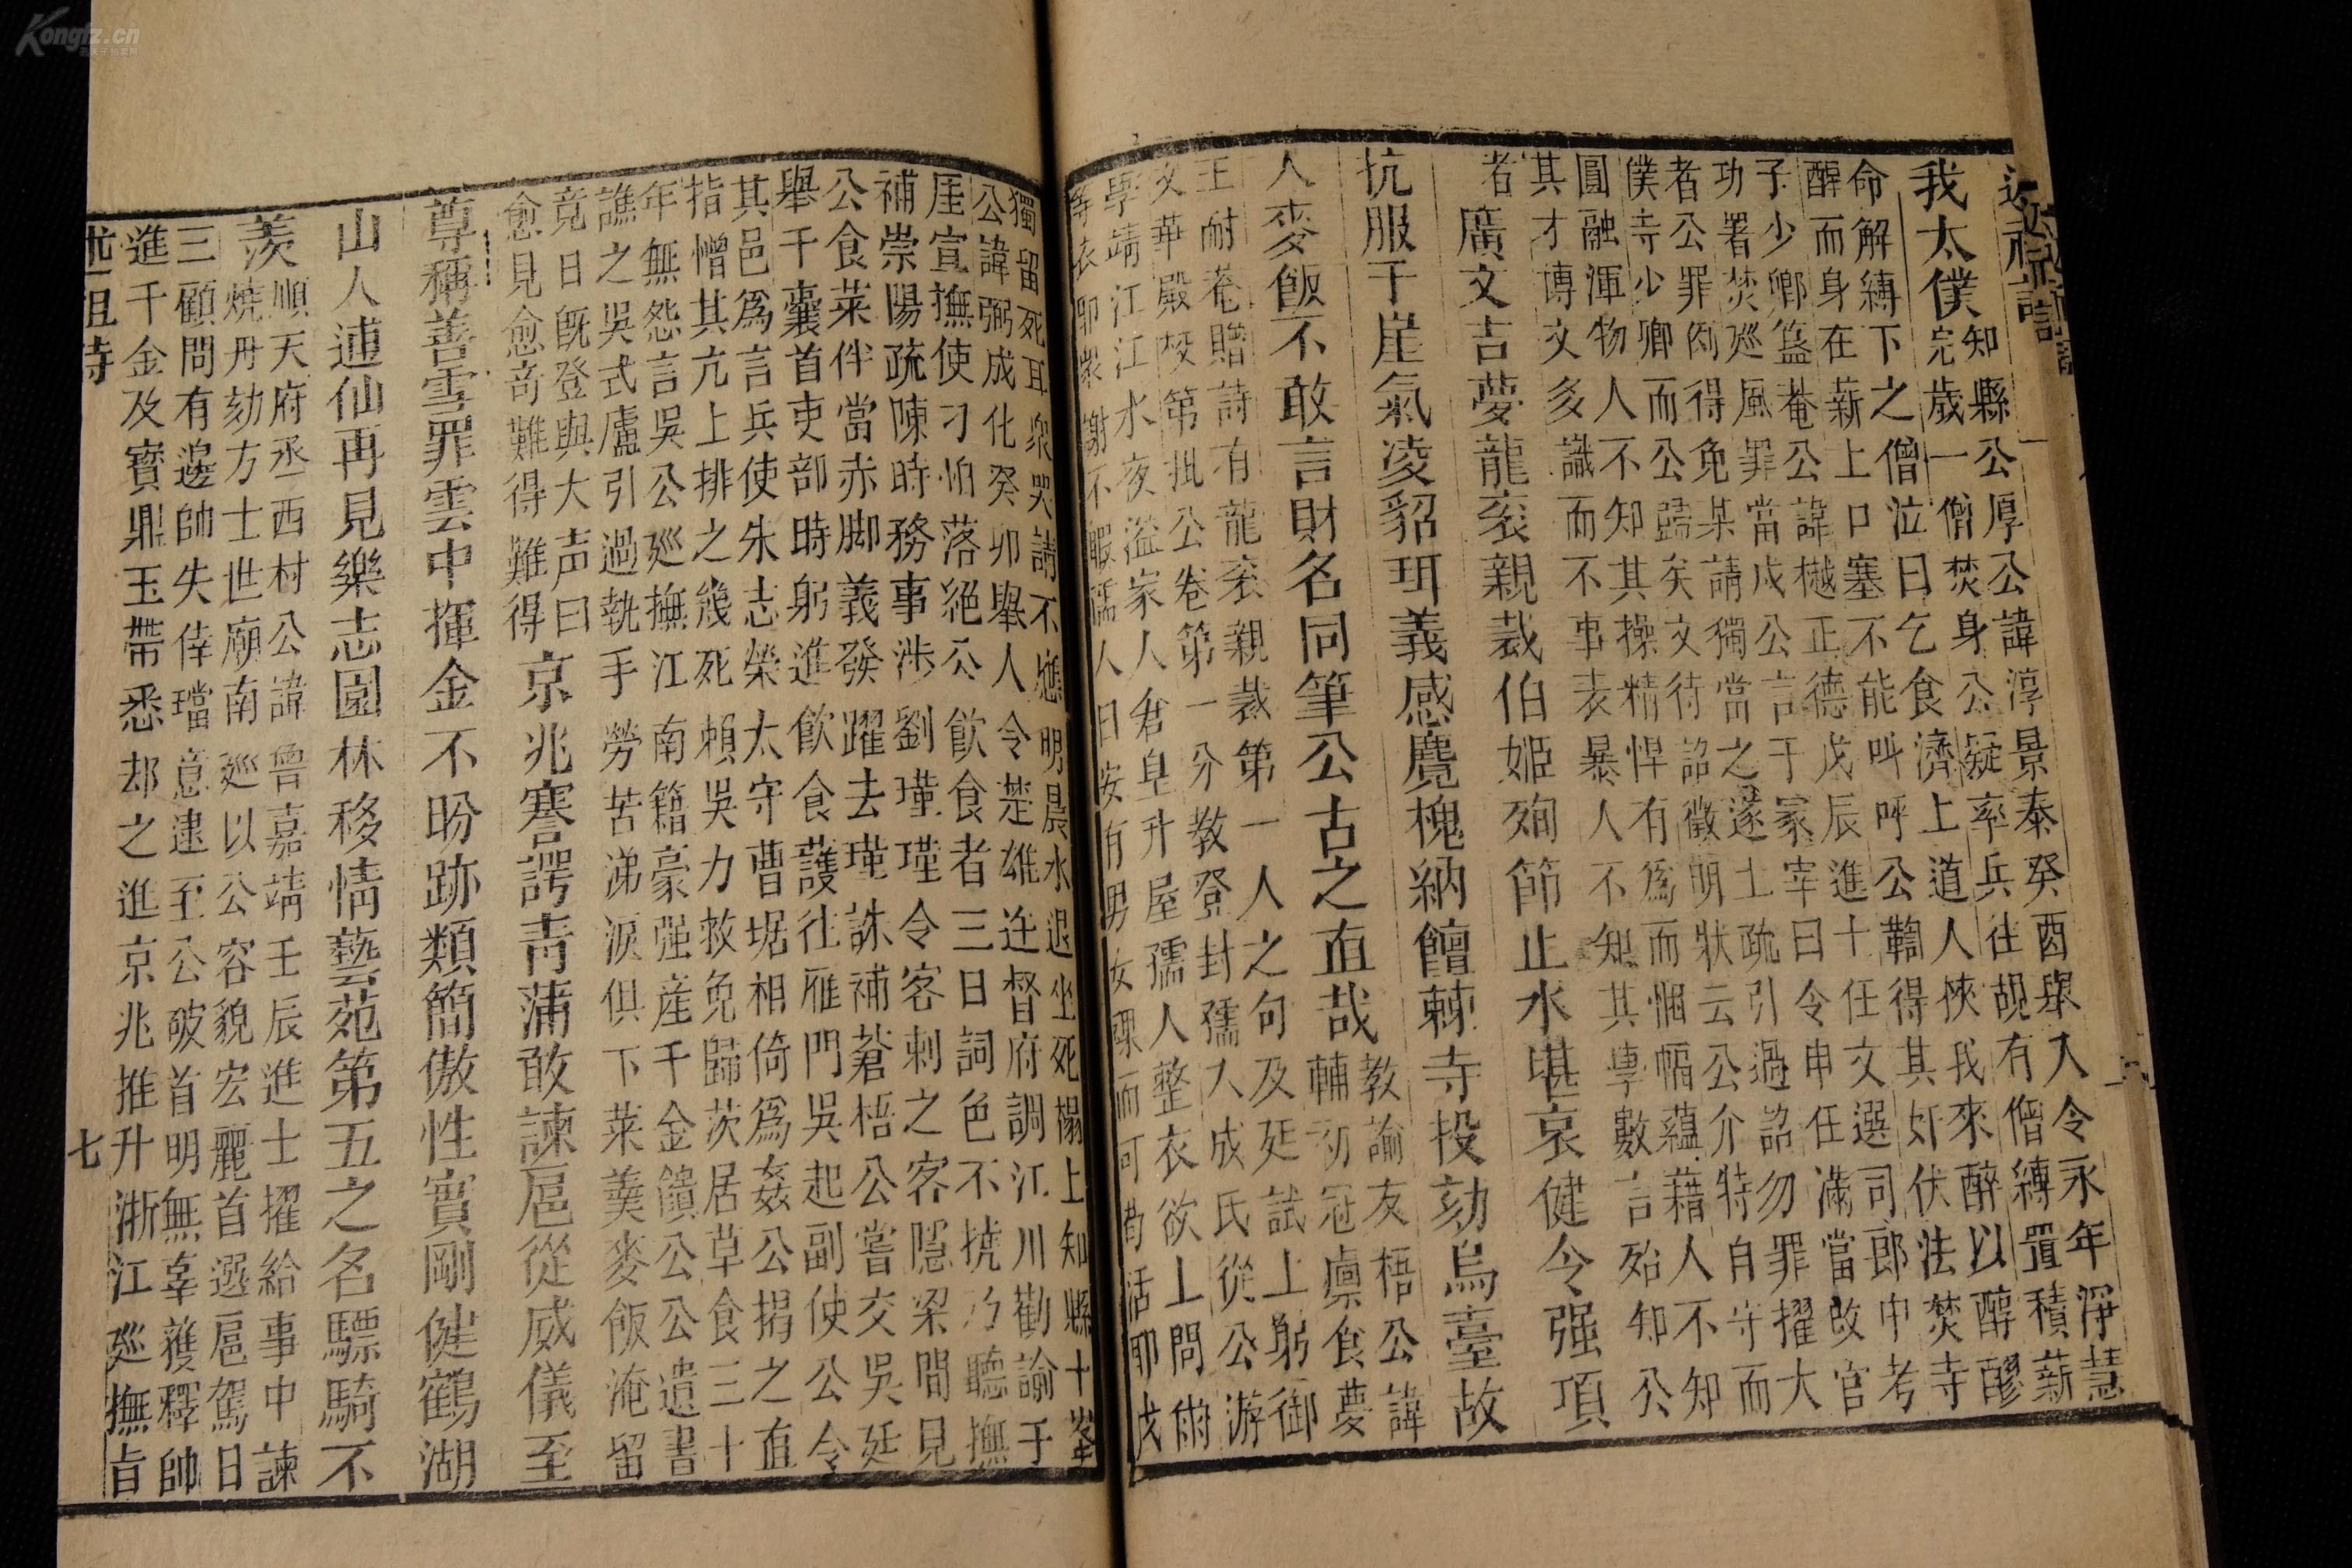 我太僕
知縣公厚公諱淳景泰癸酉舉人令永年淨慧
完歲一僧焚身公疑率兵往覘有僧縛置積薪
命解縛下之僧泣曰乞食濟上道人俠我來醉以醇醪
醒而身在薪上口塞不能叫呼公鞫得其奸伏法焚寺
子少卿簋菴公諱樾正德戊辰進士任文選司郎中考
功署焚廵風罪當戍公言于冢宰曰令申任滿當改官
者公罪閃得免某請獨當之遂上疏引過詔勿罪擢大
僕寺少卿而公歸矣文待詔徵明狀云公介特自守而
圓融渾物人不知其操精悍有爲而悃愊蘊藉人不知
其才博文多識而不事表暴人不知其學數言殆知公
者廣文吉夢龍袞親裁伯姬殉節止水堪哀健令强項
抗服于崖氣凌貂珥義感麑槐納饘棘寺投劾烏臺故
人麥飯不敢言財名同筆公古之直哉
教諭友梧公諱
輔初冠廩食夢
王耐菴贈詩有龍袞親裁第一人之句及廷試上躬御
文華殿校第批公卷第一分教登封孺人成氏從公游
學靖江江水夜溢家人窘皇升屋孺人整衣欲上問爾
等衣耶衆謝不暇孺人曰安有男女裸而可苟活耶我
獨留死耳衆哭請不應明晨水退坐死榻上知縣十峯
公諱弼成化癸卯舉人令楚雄迕督府調江川勸諭于
厓宣撫使刁怕落絕公飲食者三日詞色不撓乃聽撫
補崇陽疏陳時務事涉劉瑾瑾令客刺之客隱梁間見
公食菜伴當赤脚義發躍去瑾誅補蒼梧公嘗交吳延
舉千囊首吏部時躬進飲食護往雁門吳起副使公令
其邑爲言兵使朱志榮太守曹琚相倚爲姦公揭之直
指憎其亢上排之幾死賴吳力救免歸茨居草食三十
年無怨言吳公廵撫江南籍豪强産千金饋公公遺書
譙之吳式廬引過執手勞苦涕淚俱下菜羹麥飯淹留
竟日旣登與大声曰
愈見愈竒難得難得
京兆謇諤青蒲敢諫扈從威儀至
尊稱善雪罪雲中揮金不盼跡類簡傲性實剛健鶴湖
山人逋仙再見樂志園林移情藝苑第五之名驃騎不
羨
順天府丞西村公諱魯嘉靖壬辰進士擢給事中諫
燒丹劾方士世廟南廵以公容貌宏麗首選扈駕日
三顧問有邊帥失倖璫意逮至公破首明無辜獲釋帥
進千金及寶鼎玉帶悉却之進京兆推升浙江廵撫㫖
七
Kongfz.cn